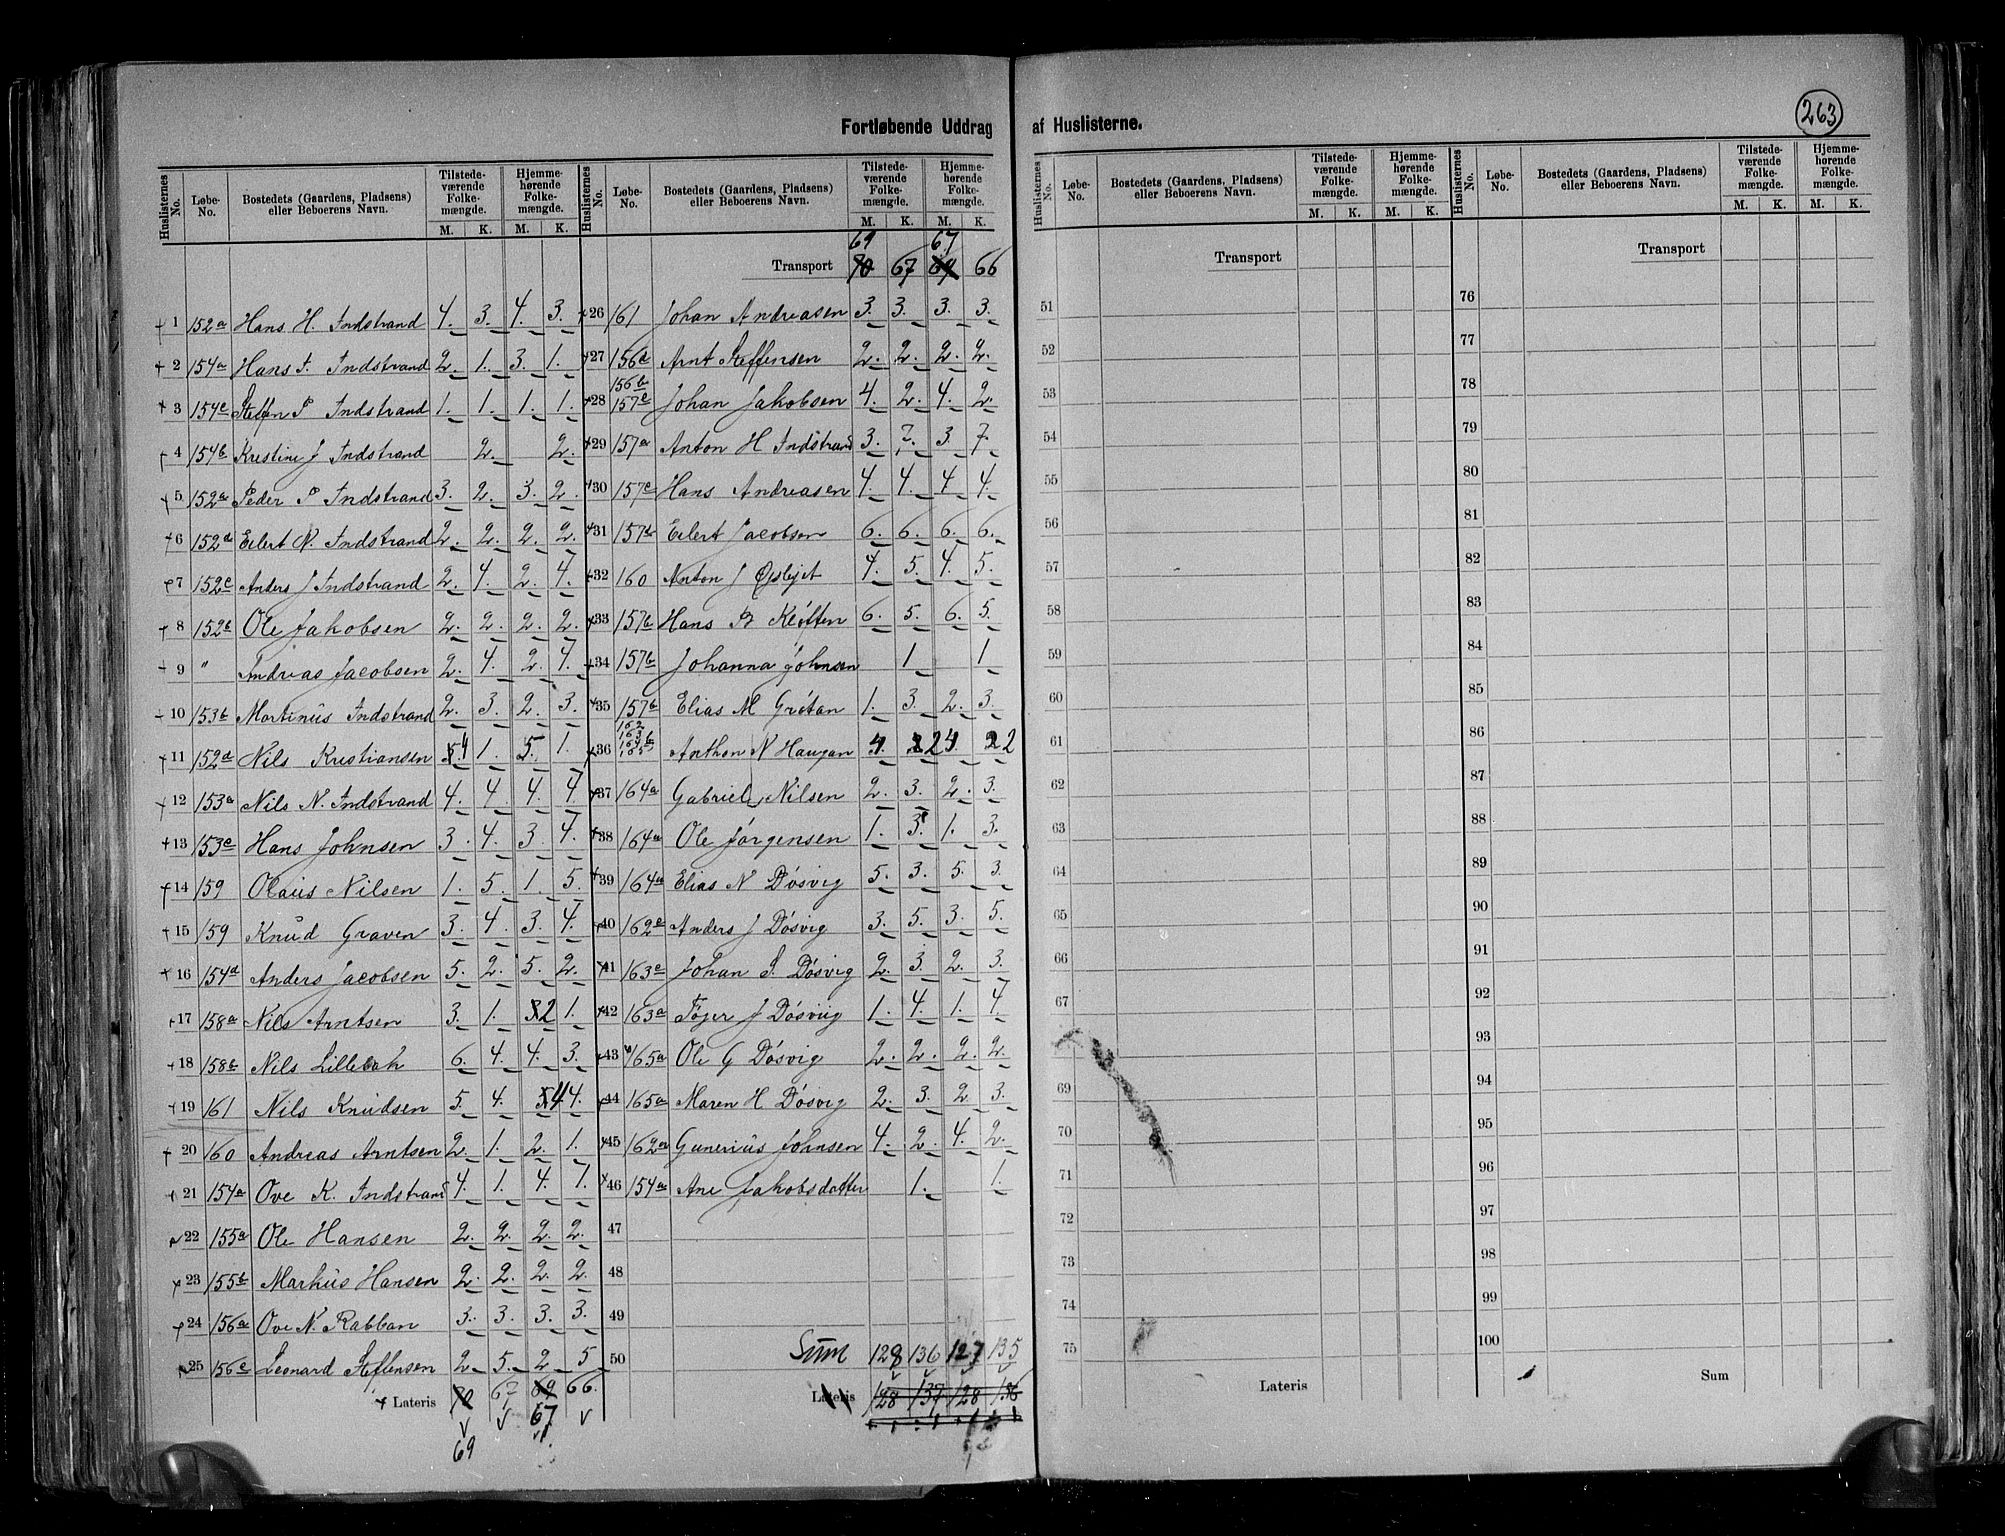 Fortløbende Uddrag af Huslisterne.
263
Huslisternes No. Løbe-No. Bostedets (Gaardens, Pladsens) eller Beboerens Navn. Tilstedeværende Folkemængde. M. K. Hjemmehørende Folkemængde. M. K.
1 152a Hans H. Indstrand 4. 3. 4. 3.
2 154a Hans P. Indstrand 2. 1. 3. 1.
3 154c Steffen P Indstrand 1. 1. 1. 1.
4 154b Kristine J Indstrand 2. 2.
5 152a Peder P Indstrand 3. 2. 3. 2.
6 152d Eilert N. Indstrand 2. 2. 2. 2.
7 152c Anders J Indstrand 2. 4. 2. 4.
8 152b Ole Jakobsen 2. 2. 2. 2.
9 " Andreas Jacobsen 2. 4. 2. 4.
10 153b Martinus Indstrand 2. 3. 2. 3.
11 152d Nils Kristiansen 5 4 1. 5. 1.
12 153a Nils N. Indstrand 4. 4. 4. 4.
13 153c Hans Johnsen 3. 4. 3. 4.
14 159 Olaus Nilsen 1. 5. 1. 5.
15 159 Knud Graven 3. 4. 3. 4.
16 154d Anders Jacobsen 5. 2. 5. 2.
17 158a Nils Arntsen 3. 1. 3 2 1.
18 158b Nils Lillebak 6. 4. 4. 3.
19 161 Nils Knudsen 5. 4. 5 4 4.
20 160 Andreas Arntsen 2. 1. 2. 1.
21 154a Ove K. Indstrand 4. 1. 4. 1.
22 155a Ole Hansen 2. 2. 2. 2.
23 155b Markus Hansen 2. 2. 2. 2.
24 156a Ove N. Rabban 3. 3. 3. 3.
25 156c Leonard Steffensen 2 5. 2 5
Lateris 70 67 69 66.
67
69
Huslisternes No. Løbe-No. Bostedets (Gaardens, Pladsens) eller Beboerens Navn. Tilstedeværende Folkemængde. M. K. Hjemmehørende Folkemængde. M. K.
69 67
Transport 70 67 69 66
26 161 Johan Andreasen 3. 3. 3. 3.
27 156d Arnt Steffensen 2. 2. 2. 2.
156b
28 157c Johan Jakobsen 4. 2. 4. 2.
29 157a Anton H Indstrand 3. 7. 3. 7.
30 157c Hans Andreasen 4. 4. 4. 4.
31 157d Eilert Jacobsen 6. 6. 6. 6.
32 160 Anton J 4. 5. 4. 5.
33 157b Hans P. Kløften 6. 5. 6. 5.
34 157b Johanna Johnsen 1 1
35 157b Elias M Grøtan 1. 3. 2. 3.
162
163
164b
36 165 Anthon N Haugan 4. 2 4. 2
37 164a Gabriel Nilsen 2. 3. 2. 3.
38 164a Ole Jørgensen 1. 3. 1. 3.
39 164a Elias N Døsvig 5. 3. 5. 3.
40 162c Anders J Døsvig 3. 5. 3. 5.
41 163c Johan S. Døsvig 2. 3. 2. 3.
42 163a Tøger J Døsvig 1. 4. 1. 4.
43 165a Ole G Døsvig 2. 2. 2. 2.
44 165a Maren H Døsvig 2. 3. 2 3.
45 162a Gunerius Johnsen 4. 2. 4. 2.
46 154a Ane Jakobsdatter 1. 1.
47
48
49
50 Sum 128 136 127 135
Lateris 128 137 128 136
Huslisternes No. Løbe-No. Bostedets (Gaardens, Pladsens) eller Beboerens Navn. Tilstedeværende Folkemængde. M. K. Hjemmehørende Folkemængde. M. K.
Transport
51
52
53
54
55
56
57
58
59
60
61
62
63
64
65
66
67
69
70
71
72
73
74
75
Lateris
Huslisternes No. Løbe-No. Bostedets (Gaardens, Pladsens) eller Beboerens Navn. Tilstedeværende Folkemængde. M. K. Hjemmehørende Folkemængde. M. K.
Transport
76
77
78
79
80
81
82
83
84
85
86
87
88
89
90
91
92
93
94
95
96
97
98
99
100
Sum